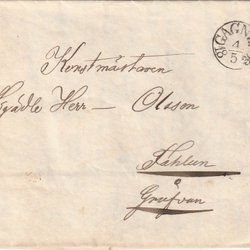 GAGN
4
5
Konstmästaren
Herr — Olsson
Fahlun
Grufvan